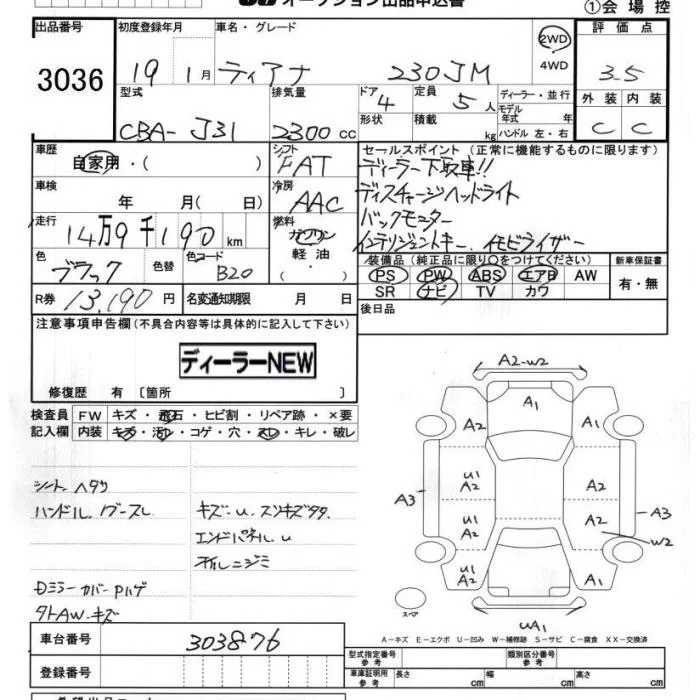 オークション出品申込書
①会場控
出品番号 初度登録年月 車名・グレード 2WD 評価点
3036 19 1月 ティアナ 230JM 4WD 3.5
型式 排気量 ドア 4 定員 5人 ディーラー・並行 外装 内装
CBA-J31 2300cc 形状 積載 kg モデル年式 年 ハンドル 左・右 C C
車歴 自家用・( ) シフト FAT セールスポイント(正常に機能するものに限ります)
ディーラー下取車!!
車検 年 月( 日) 冷房 AAC ディスチャージヘッドライト
走行 14万9千190km 燃料 ガソリン バックモニター
軽油・ インテリジェントキー、イモビライザー
色 ブラック 色替 色コード B20 ( ・ ) 装備品(純正品に限り○をつけてください) 新車保証書
PS PW ABS エアB AW 有・無
R券 13,190円 名変通知期限 月 日 SR ナビ TV カワ
注意事項申告欄(不具合内容等は具体的に記入して下さい) 後日品
ディーラーNEW
修復歴 有〔箇所 〕
検査員 FW キズ・飛石・ヒビ割・リペア跡・×要
記入欄 内装 キズ・汚レ・コゲ・穴・スレ・キレ・破レ
シートヘタリ
ハンドル、ノブースレ キズ-u.スリキズタタ
エンドパネル u
ボルトニジミ
Dミラーカバー Pハゲ
タトAW.キズ
A2-W2
A1
A2 A2
A3 U1 A2 A2 A3
U1 A2 A2 W2
U1 A1 A1
スペア
UA1
A-キズ E-エクボ U-凹み W-補修跡 S-サビ C-腐食 XX-交換済
車台番号 303876
型式指定番号 参考 類別区分番号 参考
登録番号 車庫証明用 参考 長さ cm 幅 cm 高さ cm